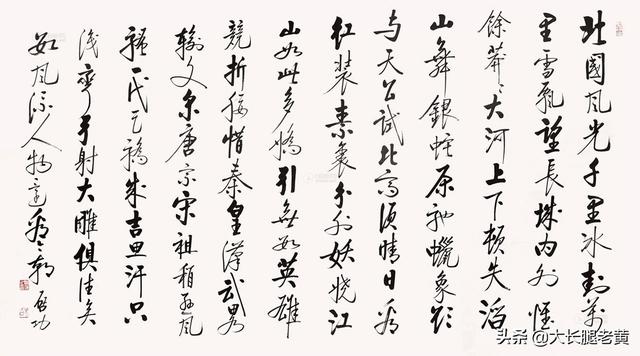 北國风光千里冰封萬
里雪飄望長城内外惟
餘莽〻大河上下顿失滔
山舞銀蛇原馳蠟象欲
与天公試比高須晴日看
红装素裹分外妖娆江
山如此多嬌引無数英雄
競折腰惜秦皇漢武畧
輸文采唐宗宋祖稍遜风
騷一代天驕成吉思汗只
识彎弓射大雕俱往矣
数风流人物還看今朝 启功
头条 @大长腿老黄